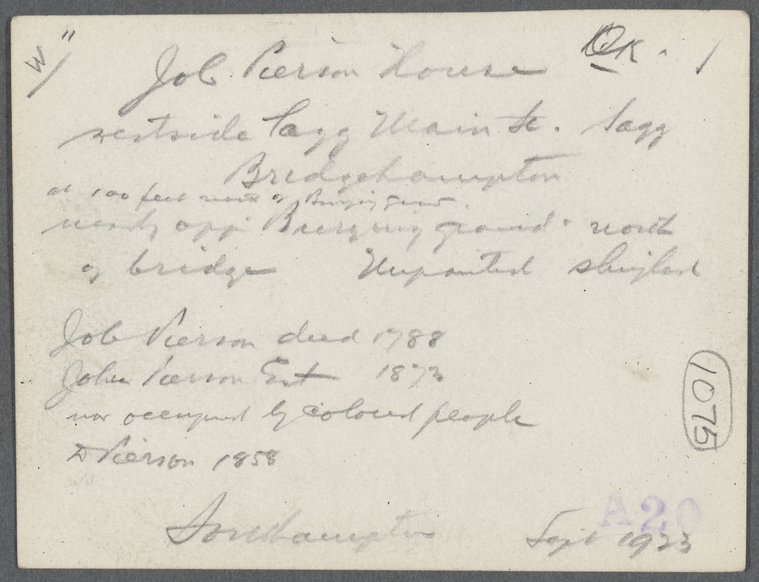 W
OK.
Job Pierson House
westside Sagg Main St. Sagg
Bridgehampton
at 100 feet north of Burying Grou
nearly opp. Burying ground north
of bridge Unpainted shingled
Job Pierson died 1788
John Pierson Est 1873
now occupied by colored people
D Pierson 1858
Southampton Sept 1923
A20
1075